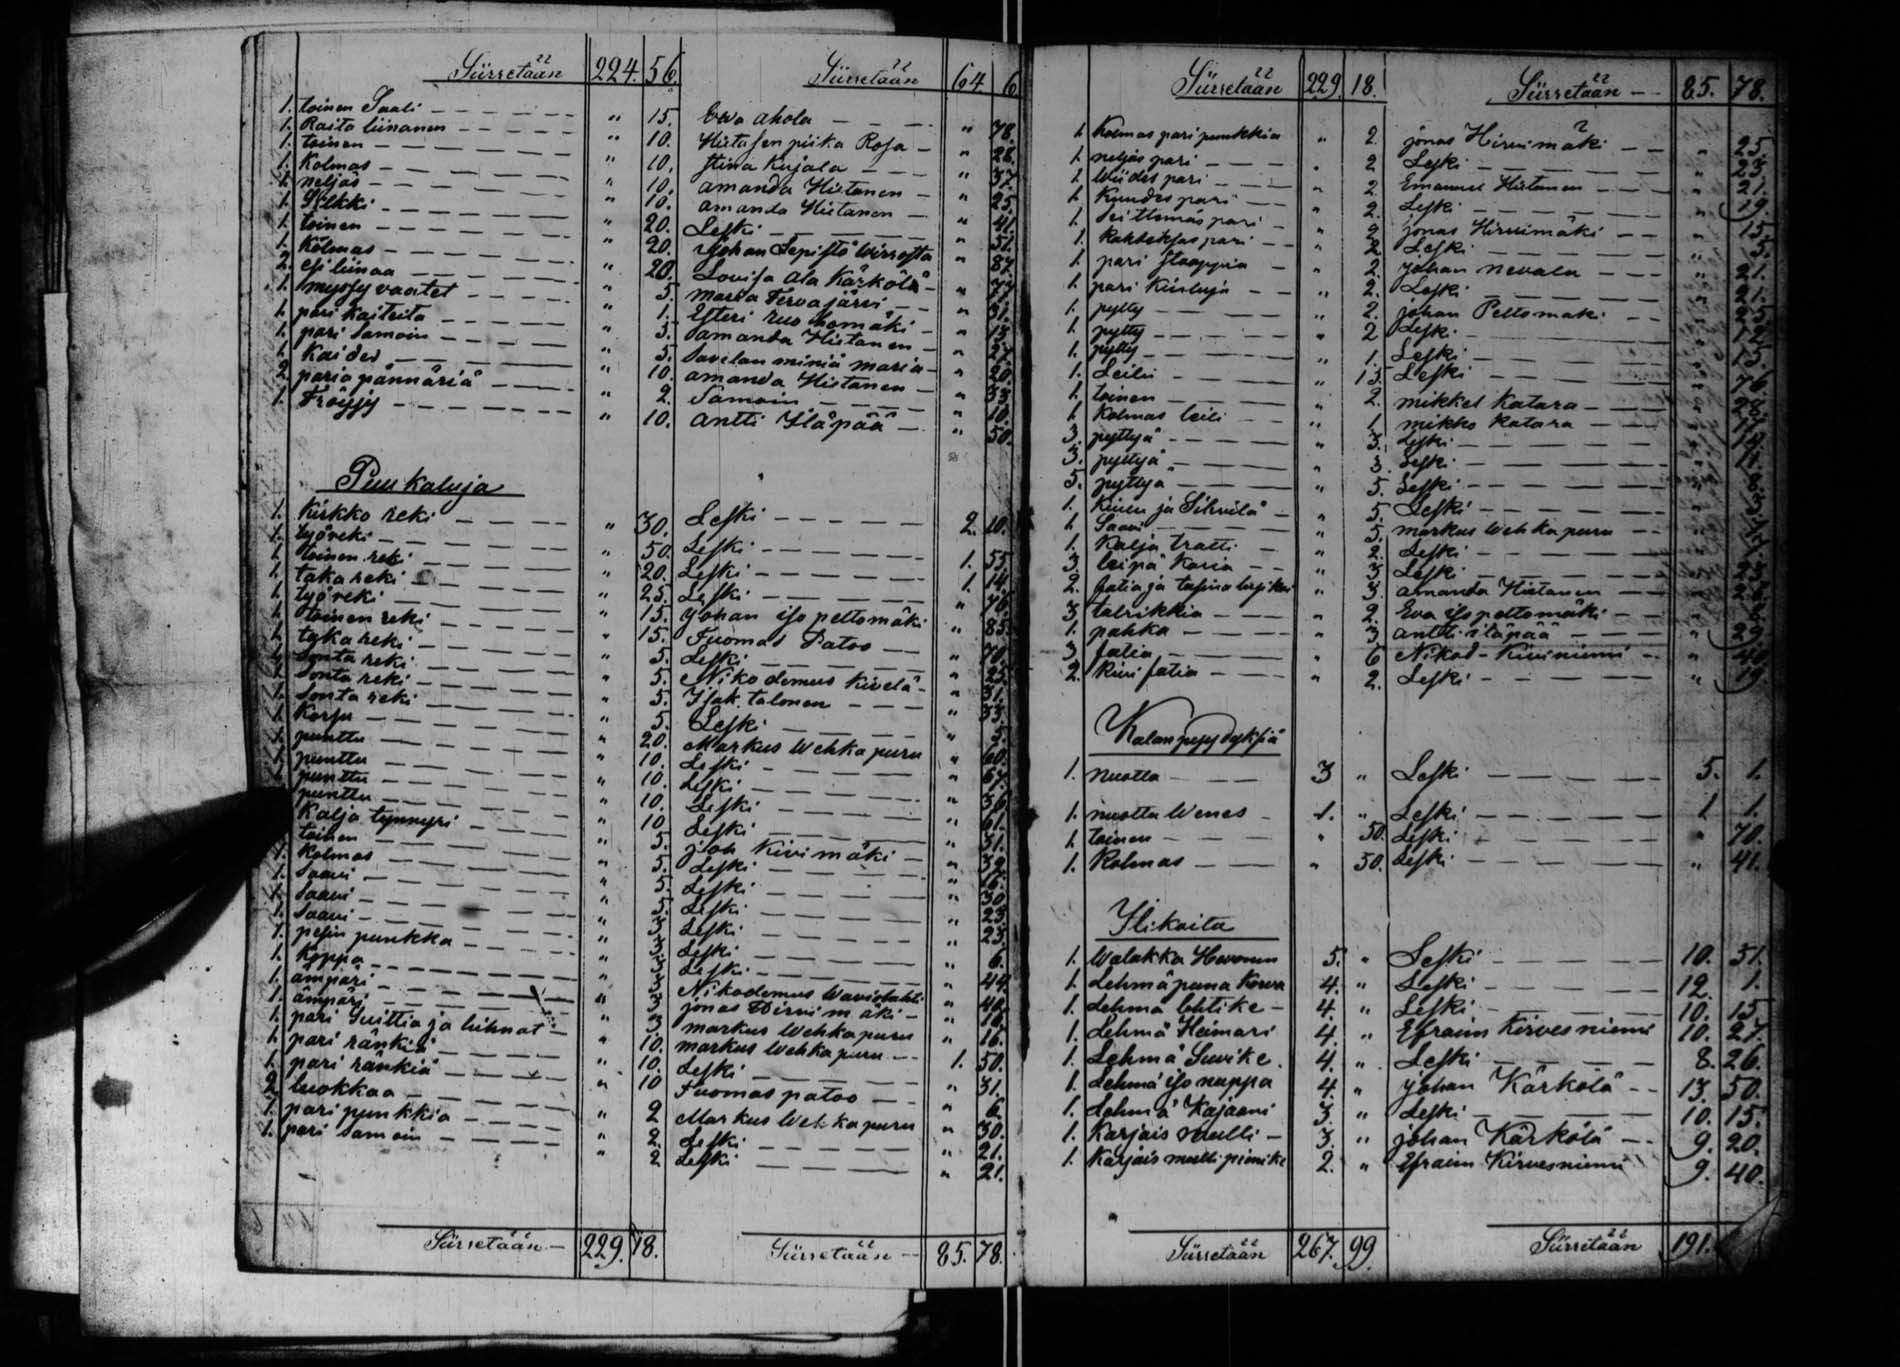 Siirretään 224. 56. Siirretään 64 6
1. toinen Saali " 15. Ewa Ahola " 78.
1. Raita liinanen " 10. Hietasen piika Rosa " 26.
1. toinen " 10. Stina Kujala " 37.
1. Kolmas " 10. Amanda Hietanen " 25.
1. neljäs " 10. Amanda Hietanen " 41.
1. Silkki " 20. Leski " 51.
1. toinen " 20. Johan Sepistö Wirroista " 87.
1. Kolmas " 20. Lovisa Ala Kärkölä "
2. esi liinaa " 5. Maria Tervajärvi " 31.
1. myssy vaatet " 1. Esteri ruohomäki " 13.
1. pari kaitseita " 5. Amanda Hietanen " 27.
1. pari Samoin " 5. Savelan miniä Maria " 20.
1. Kaidev " 10. Amanda Hietanen " 33.
2. paria pännäriä " 2. Samoin " 10.
1. Tröyjy " 10. Antti Yläpää " 50.
Puu kaluja
1. Kirkko reki " 30. Leski 2. 10.
1. työreki " 50. Leski 1. 55.
1. toinen reki " 20. Leski 1. 14.
1. taka reki " 25. Leski " 76.
1. työreki " 15. Johan iso peltomäki " 85.
1. toinen reki " 15. Tuomas Patoo " 70.
1. tyka reki " 5. Leski " 25.
1. Sonta reki " 5. Nikodemus Kivelä " 31.
1. Sonta reki " 5. Isak talonen " 33.
1. Sonta reki " 5. Leski " 5.
1. Korja " 20. Markus Wehkapuru " 60.
1. punttu " 10. Leski " 67.
1. punttu " 10. Leski " 36.
1. punttu " 10. Leski " 61.
punttu " 10 Leski " 31.
Kalja tynnyri " 5. Joh Kivimäki " 32.
toinen " 5. Leski " 16.
1. Kolmas " 5. Leski " 30.
1. Saavi " 5. Leski " 23.
1. Saavi " 3. Leski " 23.
1. Saavi " 3. Leski " 6.
1. pesin punkka " 3. Leski " 44.
1. Koppa " 3 Nikodemus Waviolahti " 40.
1. ämpäri " 3 Jonas Hirvimäki " 10.
1. ämpäri " 3. Markus Wehkapuru " 16.
1. pari Suittia ja liihnat " 10. Markus Wehkapuru 1. 50.
1. pari ränkiä " 10. Leski " 31.
1. pari ränkiä " 10 Tuomas patoo " 6.
2. luokkaa " 2 Markus Wehkapuru " 30.
1. pari punkkia " 2. Leski " 21.
1. pari Samoin " 2 Leski " 21.
Siirretään 229. 18. Siirretään 85. 78.
Siirretään 229 18. Siirretään 85. 78.
1. Kolmas pari punkkia " 2. Jonas Hirvimäki " 25.
1. neljäs pari " 2 Leski " 23.
1. Wiides pari " 2. Emanuel Hietanen " 21.
1. Kuudes pari " 2. Leski " 19.
1. Seittemäs pari " 2 Jonas Hirvimäki " 15.
1. Kahdeksas pari " 2 Leski " 5.
1. pari Stoappia " 2. Johan Nevala " 21.
1. pari Kiisluja " 2. Leski " 21.
1. pytty " 2. Johan Peltomäki " 25.
1. pytty " 2 Leski " 12.
1. pytty " 1. Leski " 15.
1. Leilu " 15. Leski " 76.
1. toinen " 2. Mikkel Katara " 28.
1. Kolmas leili " 1. Mikko Katara "
3. pyttyä " 3. Leski "
3. pyttyä " 3. Leski "
5. pyttyä " 5. Leski "
1. Kiulu ja Sihvilä " 5. Leski "
1. Saavi " 5. Markus Wehkapuru "
1. Kalja tratti " 2. Leski "
3. leipä Koria " 3 Leski "
2. fatia ja " 3. Amanda Hietanen "
3 talrikkia " 2. Eva iso peltomäki "
1. pahka " 3 Antti iläpää " 29.
3. fatia " 6 Nikod. Kiviniemi " 40.
2. Kivi fatia " 2. Leski " 19.
Kalan pyydyksiä
1. nuotta 3 " Leski 5. 1.
1. nuotta Wenes 1. " Leski 1 1.
1. toinen " 50. Leski " 70.
1. Kolmas " 50. Leski " 41.
Ilikoita
1. Walakka Hevonen 5. " Leski 10. 51.
1. Lehmä puna Korva 4. " Leski 12. 1.
1. Lehmä lehtike 4. " Leski 10. 15.
1. Lehmä Heimari 4. " Efraim Kirvesniemi 10. 27.
1. Lehmä Suvike 4. " Leski 8. 26.
1. Lehmä iso nappa 4. " Johan Kärkölä 13. 50.
1. Lehmä Kajaani 3. " Leski 10. 15.
1. Karjais mulli 3. " Johan Kärkölä 9. 20.
1. Karjais mulli pienike 2. " Efraim Kirvesniemi 9. 40.
Siirretään 267. 99. Siirretään 191.